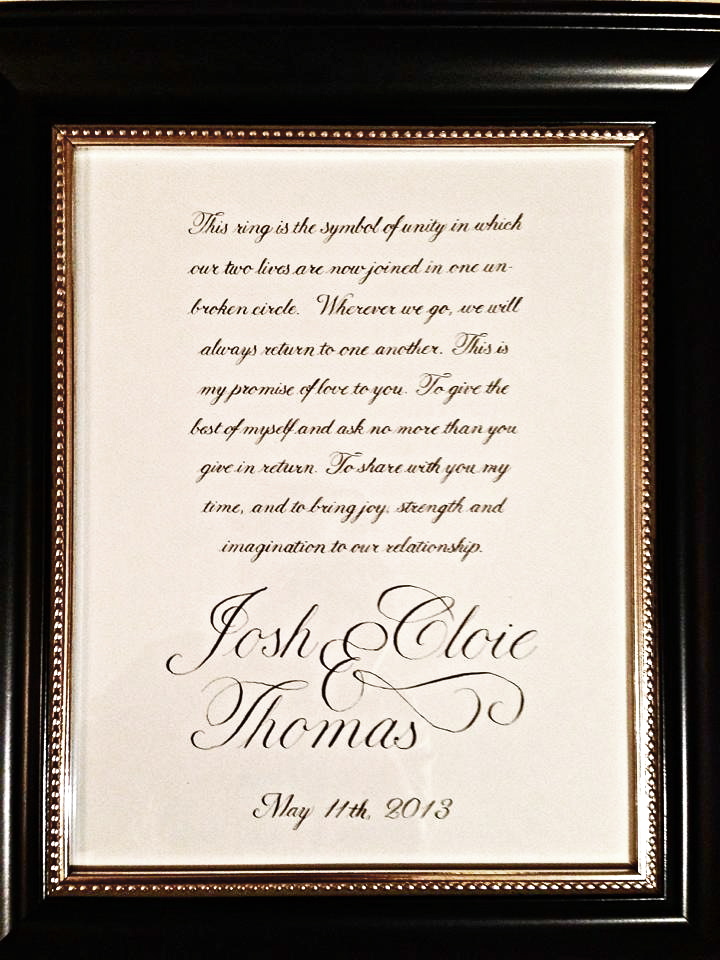 This ring is the symbol of unity in which
our two lives are now joined in one un-
broken circle. Wherever we go, we will
always return to one another. This is
my promise of love to you. To give the
best of myself and ask no more than you
give in return. To share with you my
time, and to bring joy, strength and
imagination to our relationship.
Josh & Cloie
Thomas
May 11th, 2013